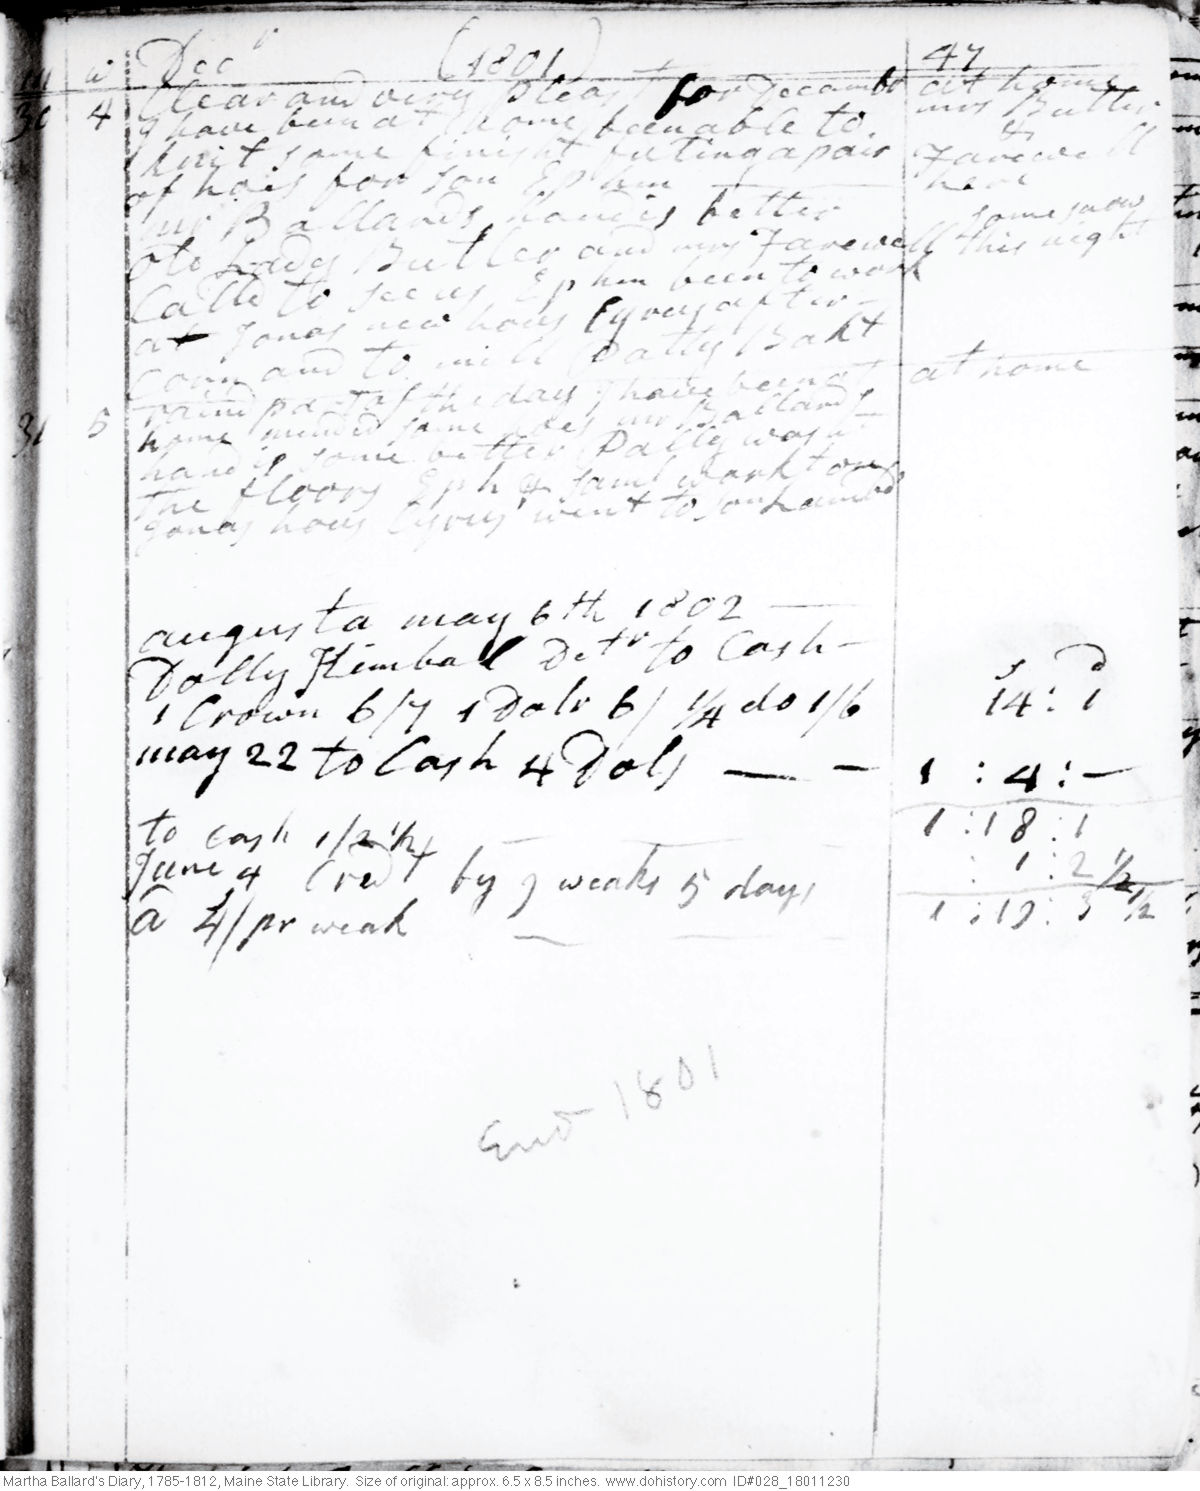 m w Decr (1801) 47
30 4 Clear and very Pleast for Decembr at home
I have been at home been able to mrs Butler
knit some finisht futing a pair & Farewell
of hois for son Ephm here
mr Ballards hand is better some snow
old Lady Butler and mrs Farewell this night
Calld to see us, Ephm been to work
at Jonas new hous Cyrus after
Corn and to mill Dolly Bakt
31 5 raind part of the day I have been at at home
home mended some hoes mr Ballards
hand is some better Dolly washt
the floors Eph & Saml workt on
Jonas hous Cyrus went to son Lambd
augusta may 6th 1802
Dolly Kimbal Detr to Cash — s D
1 Crown 6/7 1 Dolr 6/ 1/4 do 1/6 14 : 1
may 22 to Cash 4 Dols — — 1 : 4 : —
1 : 18 : 1
to cash 1/2 1/2 : 1 : 2 1/2
June 4 Credt by 9 weaks 5 days 1 : 19 : 3 1/2
a 4/ pr weak
End 1801
Martha Ballard's Diary, 1785-1812, Maine State Library. Size of original: approx. 6.5 x 8.5 inches. www.dohistory.com ID#028_18011230